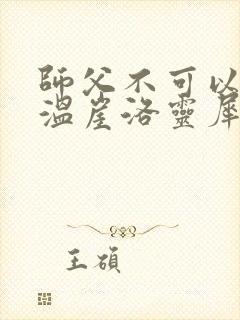 師父不可以
溫崖洛靈犀
王碩